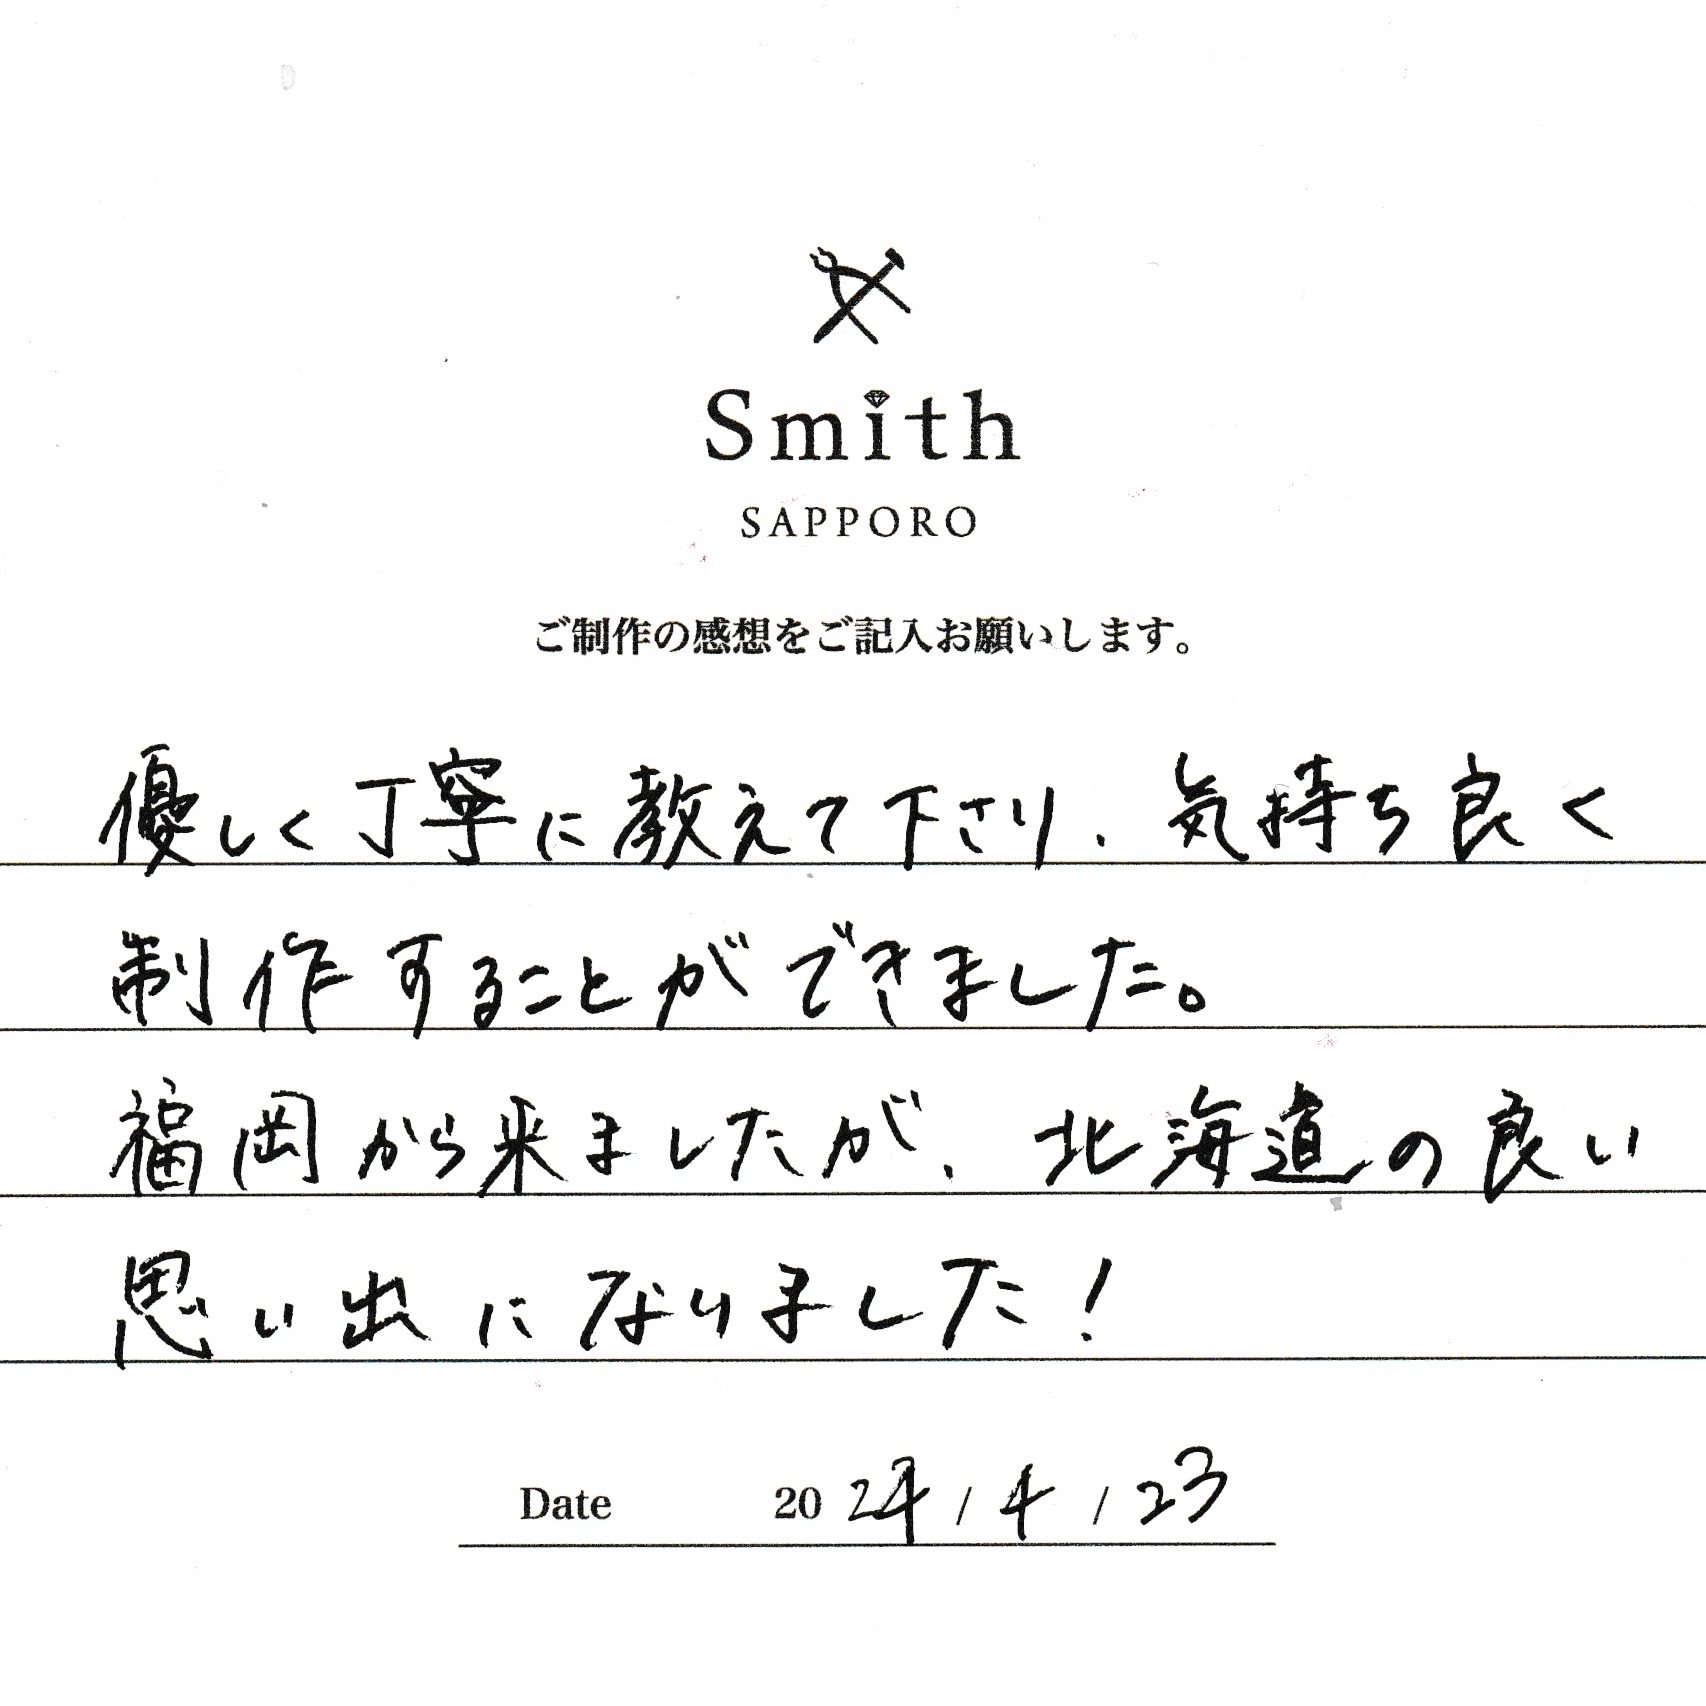 Smith
SAPPORO
ご制作の感想をご記入お願いします。
優しく丁寧に教えて下さり、気持ち良く
制作することができました。
福岡から来ましたが、北海道の良い
思い出になりました！
Date 2024/4/23